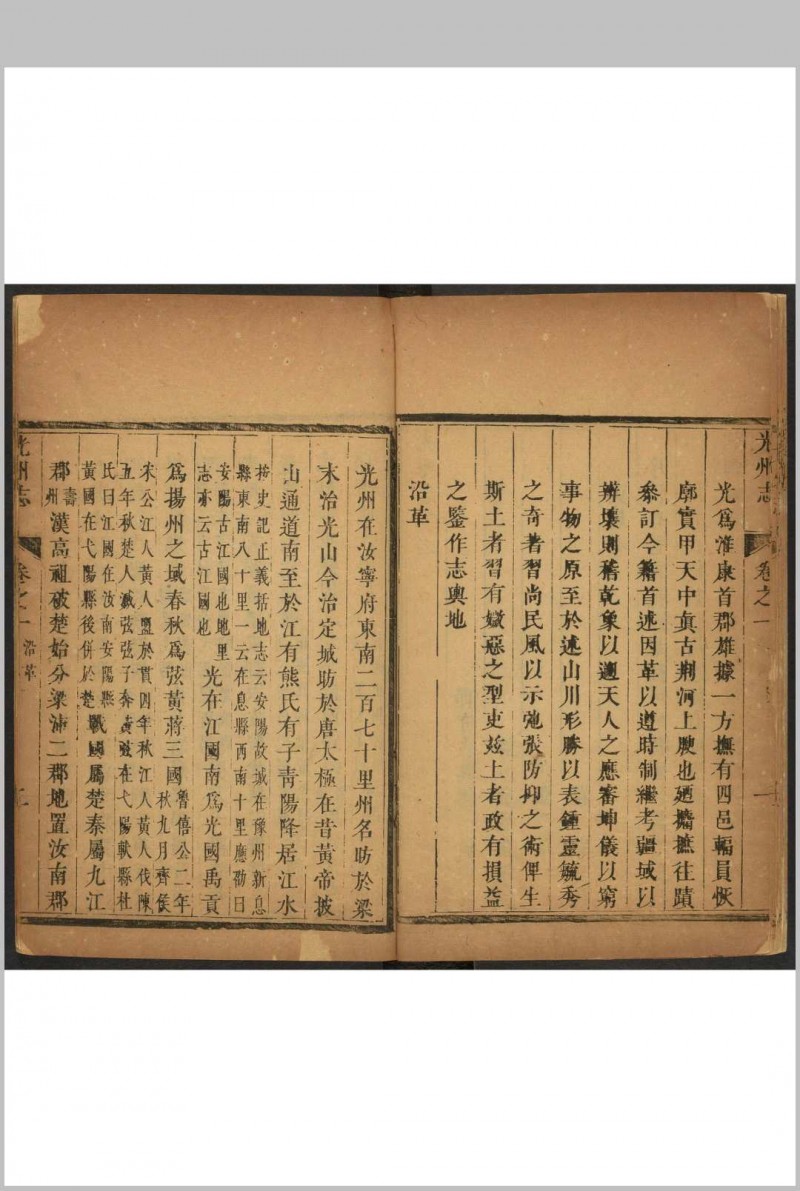 光州志
卷之一
一
光爲淮康首郡雄據一方撫有四邑輻員恢
廓實甲天中眞古荆河上腴也廼摭往蹟
參訂今籍首述因革以遵時制繼考疆域以
辨壤則稽乾象以遡天人之應審坤儀以窮
事物之原至於述山川形勝以表鍾靈毓秀
之奇著習尚民風以示弛張防抑之術俾生
斯土者習有媺惡之型吏茲土者政有損益
之鑒作志輿地
沿革
光州在汝寧府東南二百七十里州名昉於梁
末治光山今治定城昉於唐太極在昔黃帝披
山通道南至於江有熊氏有子靑陽降居江水
按史記正義括地志云安陽故城在豫州新息
縣東南八十里一云在息縣西南十里應劭曰
安陽古江國也地里
志亦云古江國也
光在江國南爲光國禹貢
爲揚州之域春秋爲弦黃蔣三國
魯僖公二年
秋九月齊侯
宋公江人黃人盟於貫四年秋江人黃人伐陳
五年秋楚人滅弦弦子奔黃弦在弋陽軑縣杜
氏曰江國在汝南安陽縣
黃國在弋陽縣後併於楚
戰國屬楚秦屬九江
郡
壽
州
漢高祖破楚始分梁沛二郡地置汝南郡
光州志
卷之一
沿革
二